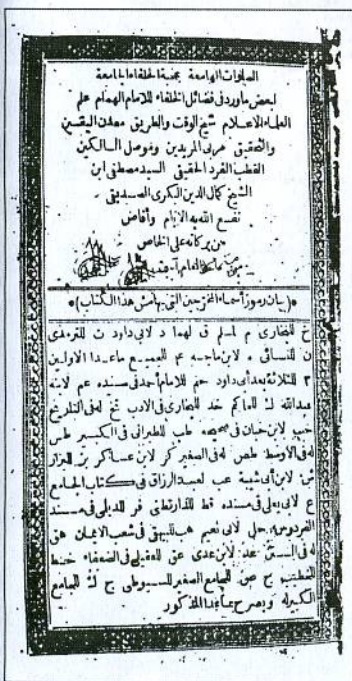 الصلوات الهامعة بمحبة الخلفاء الجامعة
لبعض ماورد فى فضائل الخلفاء للامام الهمام علم
العلماء الاعلام شيخ الوقت والطريق معدن اليقين
والتحقيق مربى المريدين وموصل السالكين
القطب الفرد الحقيقى السيد مصطفى ابن
الشيخ كمال الدين البكرى الصديقى
نفع الله به الانام وأفاض
من بركاته على الخاص
والعام آمين
(بيان رموز أسماء المخرجين التى بهامش هذا الكتاب)
خ للبخارى م لمسلم ق لهما د لابى داود ت للترمذى
ن للنسائى ه لابن ماجه ع للجميع ماعدا الاولين
٣ للثلاثة بعد أبى داود حم للامام أحمد فى مسنده عم لابنه
عبدالله ك للحاكم خد للبخارى فى الادب تخ له فى التاريخ
حب لابن حبان فى صحيحه طب للطبرانى فى الكبير طس
له فى الاوسط طص له فى الصغير كر لابن عساكر بز للبزار
ش لابن أبى شيبة عب لعبد الرزاق فى كتاب الجامع
ع لابى يعلى فى مسنده قط للدارقطنى فر للديلمى فى مسند
الفردوس حل لابى نعيم هب للبيهقى فى شعب الايمان هق
له فى السنن عد لابن عدى عق للعقيلى فى الضعفاء خط
للخطيب ج ص للجامع الصغير للسيوطى ج ك للجامع
الكبير له ويصرح بماعدا المذكور